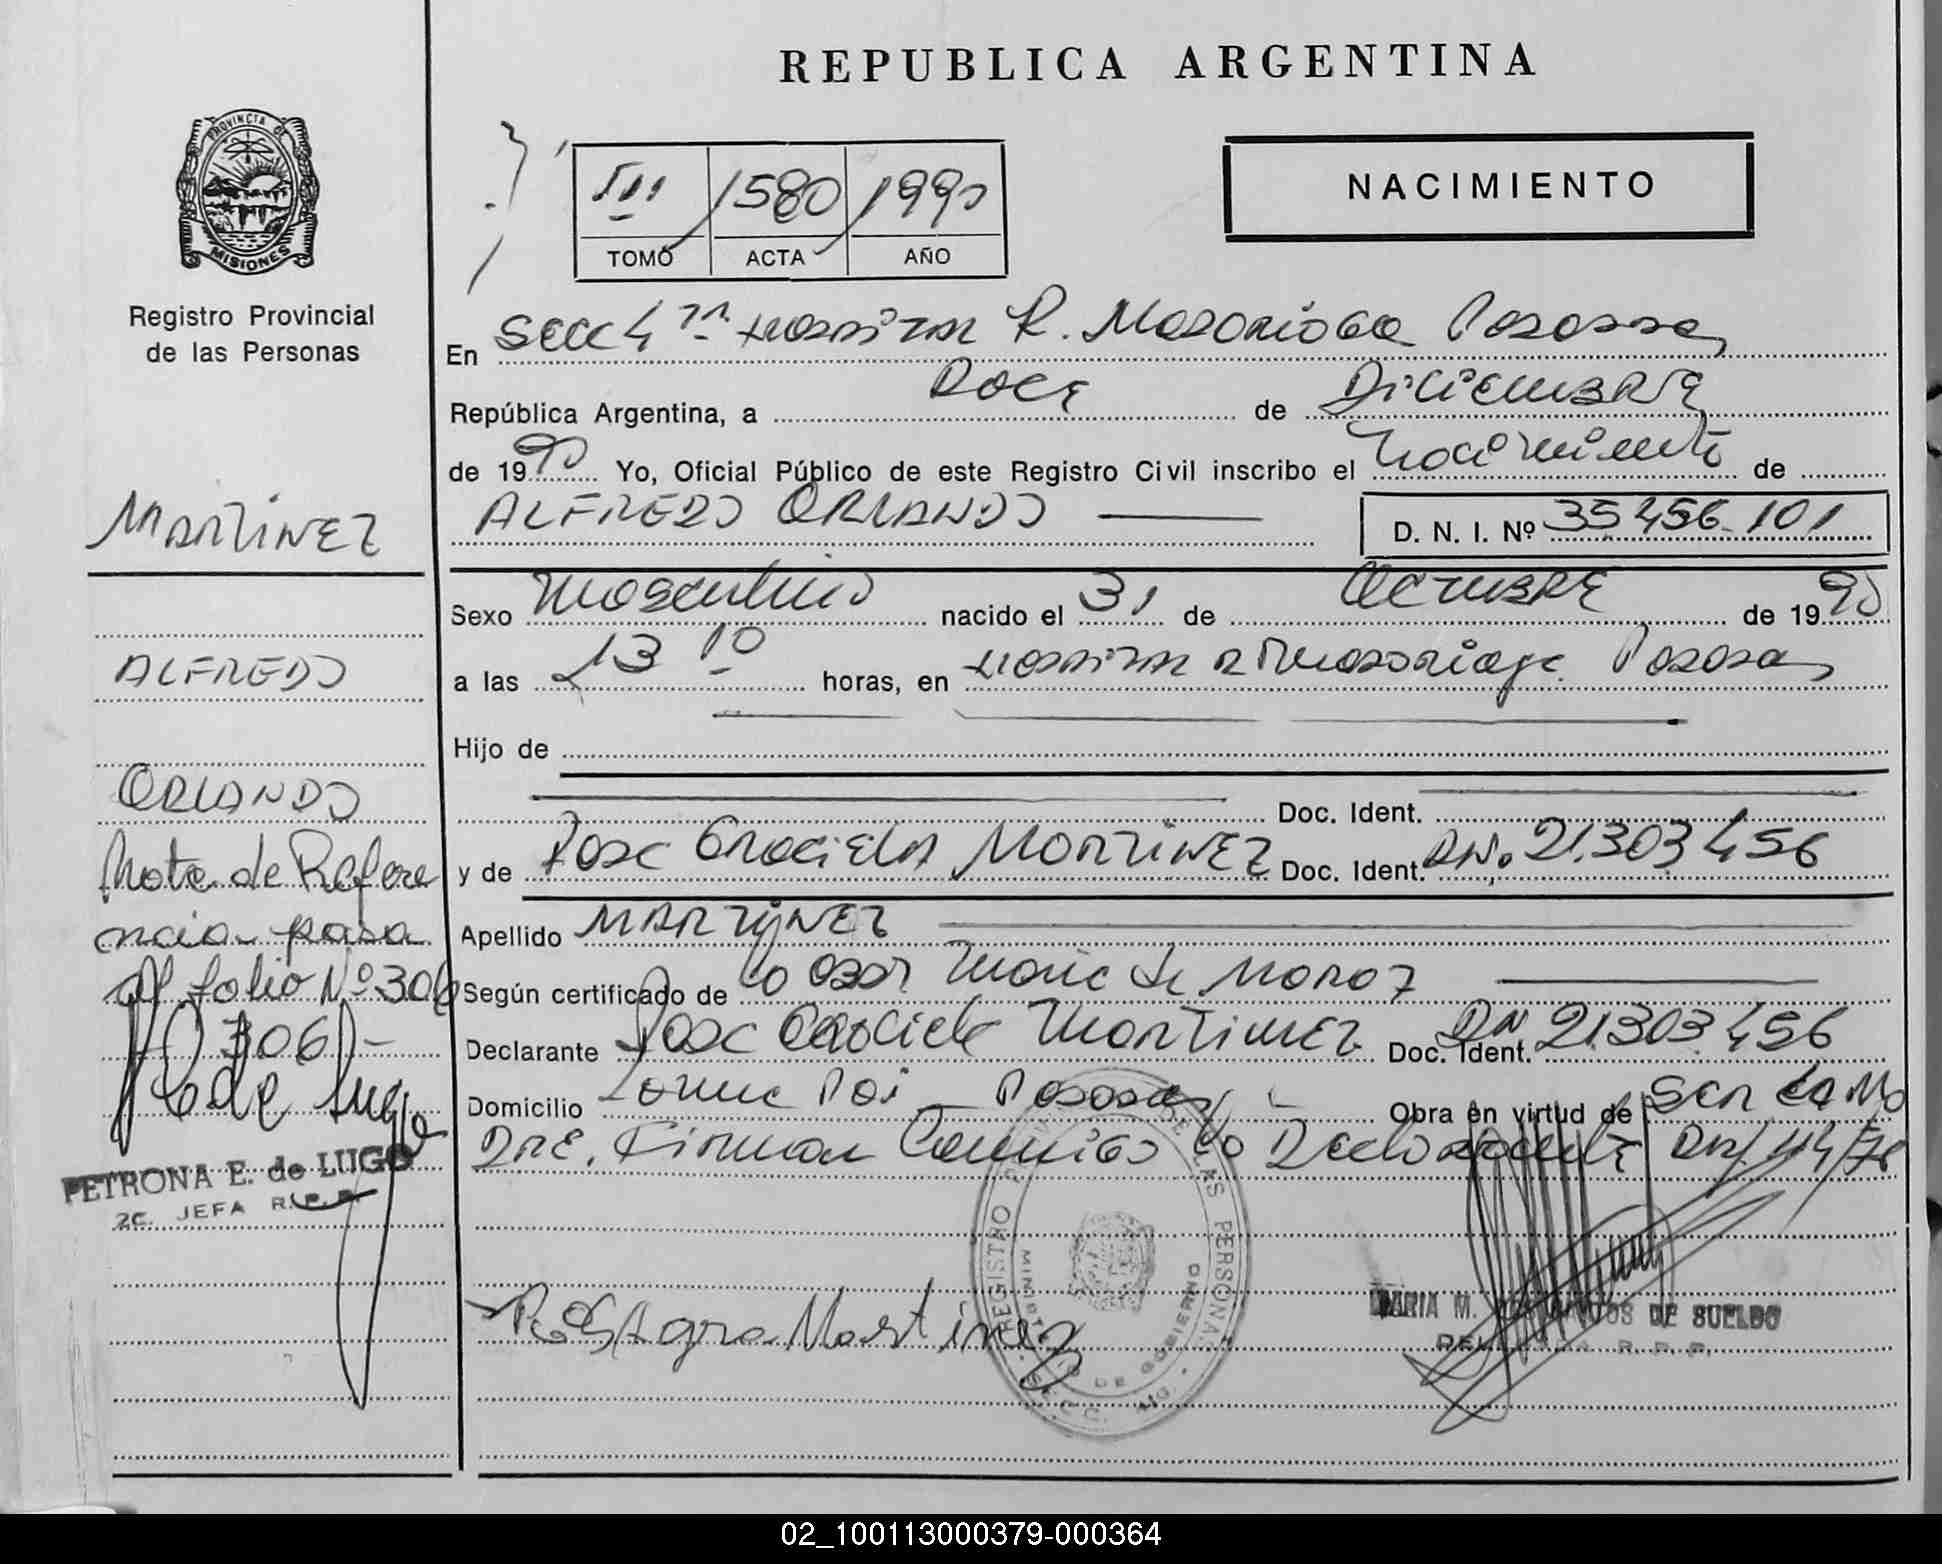 REPUBLICA ARGENTINA
PROVINCIA DE
MISIONES
Registro Provincial
de las Personas
III 1580 1990
TOMO ACTA AÑO
NACIMIENTO
En Secc 4ta Hospital R. Madariaga Posadas
República Argentina, a Doce de Diciembre
de 1990 Yo, Oficial Público de este Registro Civil inscribo el nacimiento de
ALFREDO ORLANDO D. N. I. Nº 35.456.101
Sexo Masculino nacido el 31 de Octubre de 1990
a las 13 10 horas, en Hospital R Madariaga Posadas
Hijo de
Doc. Ident.
y de Rosa Graciela MARTINEZ Doc. Ident. DNI. 21.303.456
Apellido MARTINEZ
Según certificado de
Declarante Rosa Graciela Martinez Doc. Ident. DNI 21.303.456
Domicilio Posadas Obra en virtud de Ser la Ma
Dre. Firman Conmigo la Declarante
MARTINEZ
ALFREDO
ORLANDO
Nota de Refere
ncia pasa
al folio Nº 306
306
PETRONA E. de LUGO
2da. JEFA R.P.P.
Rosa Gra Martinez
REGISTRO DE LAS PERSONAS
MINISTERIO DE GOBIERNO
MARIA M. DE SUELDO
R. P. P.
02_100113000379-000364